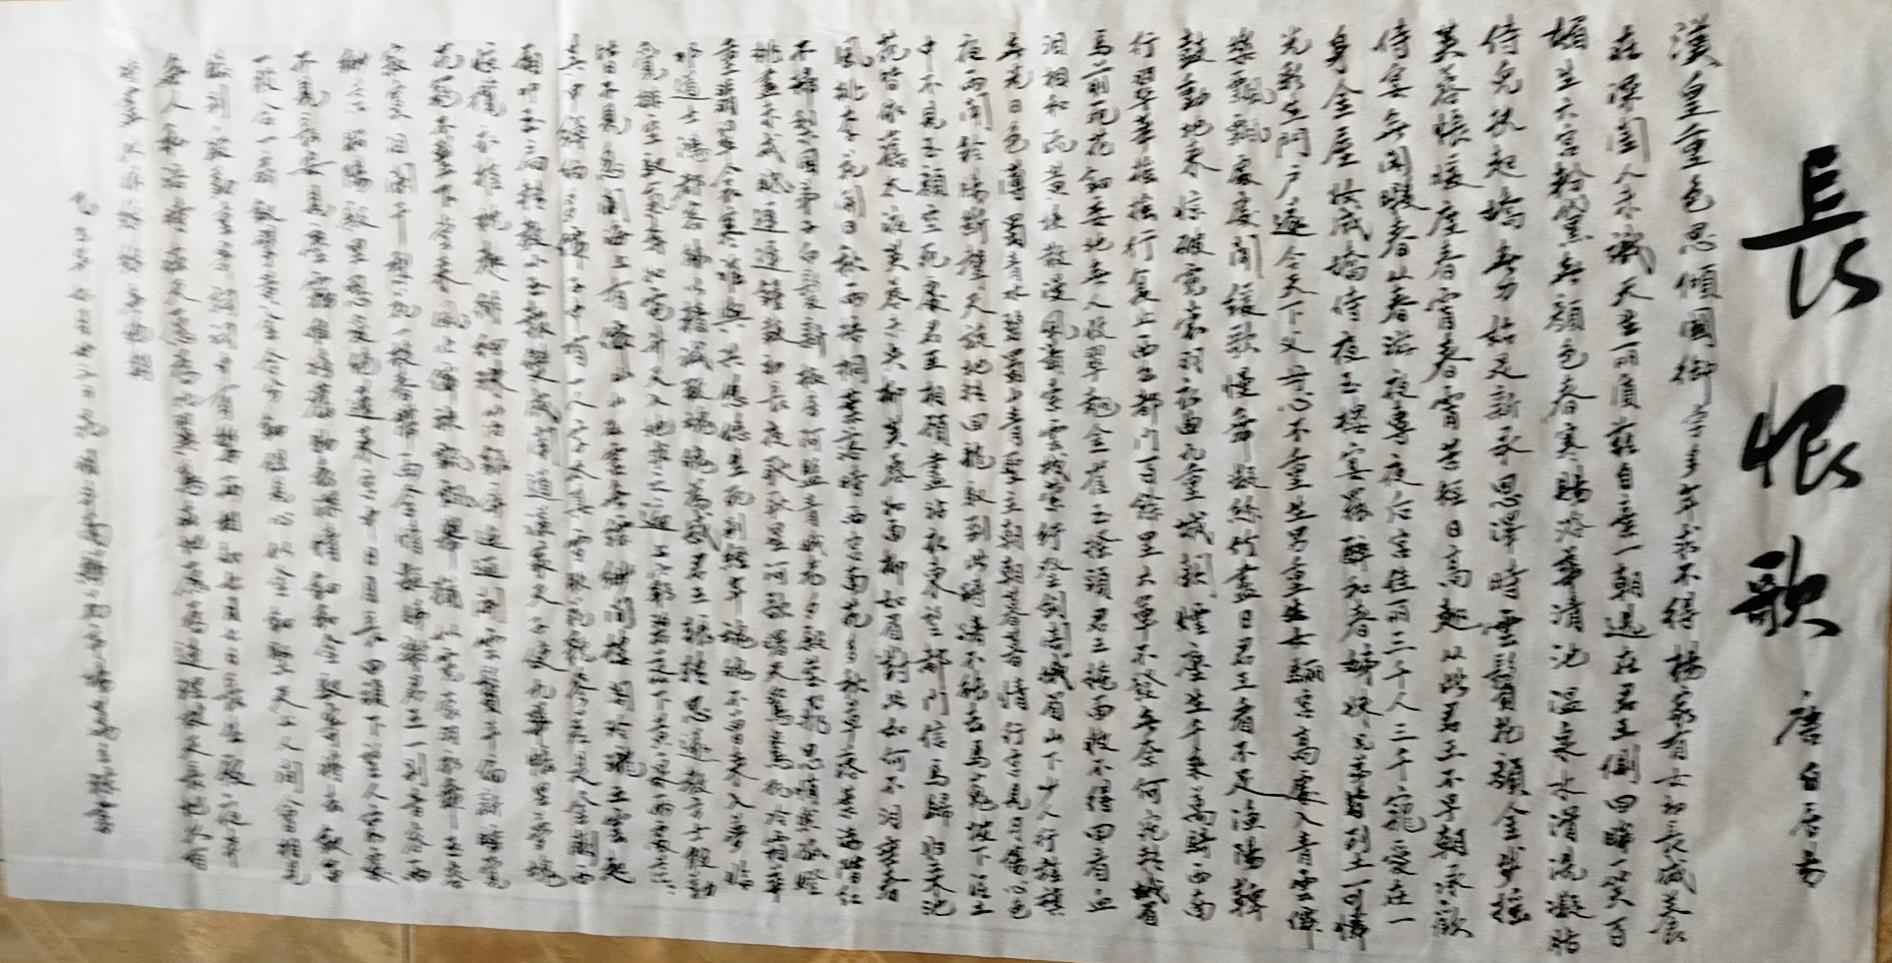 長恨歌 唐白居易
漢皇重色思傾國御宇多年求不得楊家有女初長成養
在深閨人未識天生麗質難自棄一朝選在君王側回眸一笑百
媚生六宮粉黛無顏色春寒賜浴華清池溫泉水滑洗凝脂
侍兒扶起嬌無力始是新承恩澤時雲鬢花顏金步搖
芙蓉帳暖度春宵春宵苦短日高起從此君王不早朝承歡
侍宴無閒暇春從春遊夜專夜后宮佳麗三千人三千寵愛在一
身金屋妝成嬌侍夜玉樓宴罷醉和春姊妹兄弟皆列土可憐
光彩生門戶遂令天下父母心不重生男重生女驪宮高處入青雲僊
樂飄飄處處聞緩歌慢舞凝絲竹盡日君王看不足漁陽鼙
鼓動地來驚破霓裳羽衣曲九重城闕煙塵生千乘萬騎西南
行翠華搖搖行復止西出都門百餘里六軍不發無奈何宛轉蛾眉
馬前死花鈿委地無人收翠翹金雀玉搔頭君王掩面救不得回看血
淚相和流黃埃散漫風蕭索雲棧縈紆登劍閣峨眉山下少人行旌旗
無光日色薄蜀江水碧蜀山青聖主朝朝暮暮情行宮見月傷心色
夜雨聞鈴腸斷聲天旋地轉回龍馭到此躊躇不能去馬嵬坡下泥土
中不見玉顏空死處君臣相顧盡沾衣東望都門信馬歸歸來池
苑皆依舊太液芙蓉未央柳芙蓉如面柳如眉對此如何不淚垂春
風桃李花開日秋雨梧桐葉落時西宮南苑多秋草落葉滿階紅
不掃梨園弟子白髮新椒房阿監青娥老夕殿螢飛思悄然孤燈
挑盡未成眠遲遲鐘鼓初長夜耿耿星河欲曙天鴛鴦瓦冷霜華
重翡翠衾寒誰與共悠悠生死別經年魂魄不曾來入夢臨
邛道士鴻都客能以精誠致魂魄為感君王輾轉思遂教方士殷勤
覓排空馭氣奔如電升天入地求之遍上窮碧落下黃泉兩處茫茫
皆不見忽聞海上有僊山山在虛無縹緲間樓閣玲瓏五雲起
其中綽約多僊子中有一人字太真雪膚花貌參差是金闕西
廂叩玉扃轉教小玉報雙成聞道漢家天子使九華帳里夢魂
驚攬衣推枕起徘徊珠箔銀屏迤邐開雲鬢半偏新睡覺
花冠不整下堂來風吹僊袂飄飄舉猶似霓裳羽衣舞玉容
寂寞淚闌干梨花一枝春帶雨含情凝睇謝君王一別音容兩
渺茫昭陽殿里恩愛絕蓬萊宮中日月長回頭下望人寰處
不見長安見塵霧唯將舊物表深情鈿合金釵寄將去釵留
一股合一扇釵擘黃金合分鈿但教心似金鈿堅天上人間會相見
臨別殷勤重寄詞詞中有誓兩心知七月七日長生殿夜半
無人私語時在天願為比翼鳥在地願為連理枝天長地久有
時盡此恨綿綿無絕期